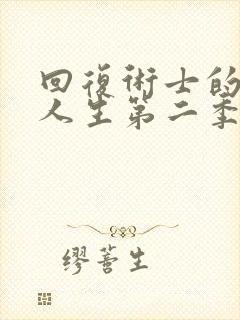 回復術士的
人生第二季
缪蕾生